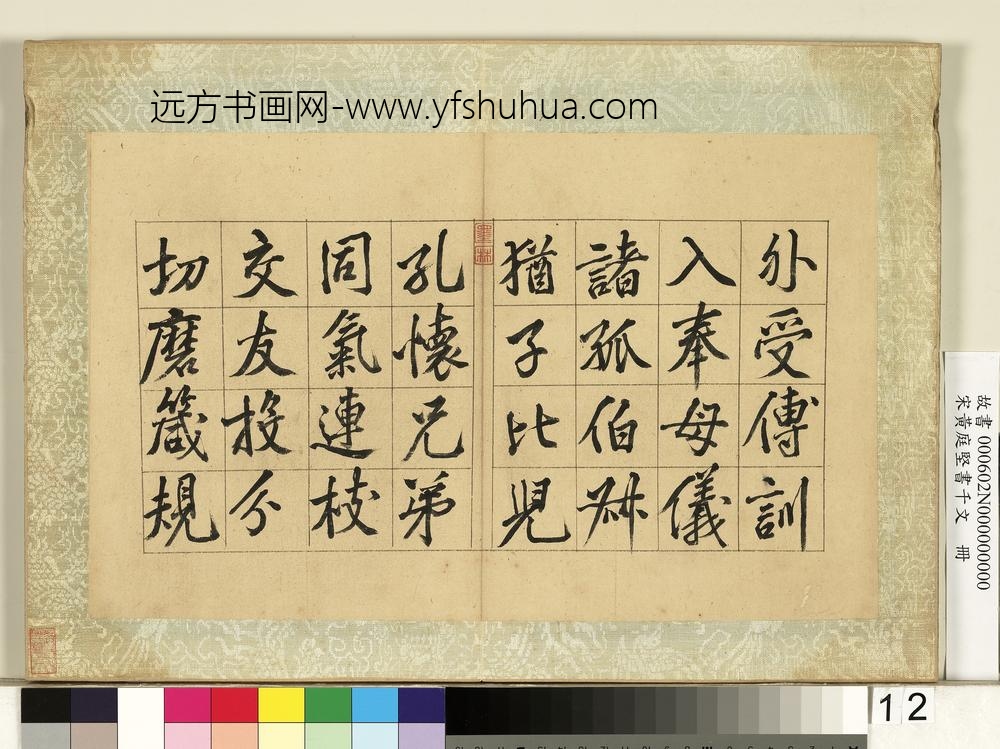 远方书画网-www.yfshuhua.com
外受傅訓
入奉母儀
諸孤伯叔
猶子比兒
孔懷兄弟
同氣連枝
交友投分
切磨箴規
墨林
故書 000602N000000000
宋黃庭堅書千文 冊
12